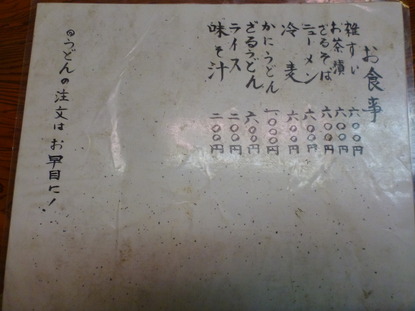 お食事
雑すい 六〇〇円
お茶漬 六〇〇円
ざるそば 六〇〇円
ニューメン 六〇〇円
冷麦 六〇〇円
かにうどん 一〇〇〇円
ざるうどん 六〇〇円
ライス 二〇〇円
味そ汁 二〇〇円
◎うどんの注文はお早目に！